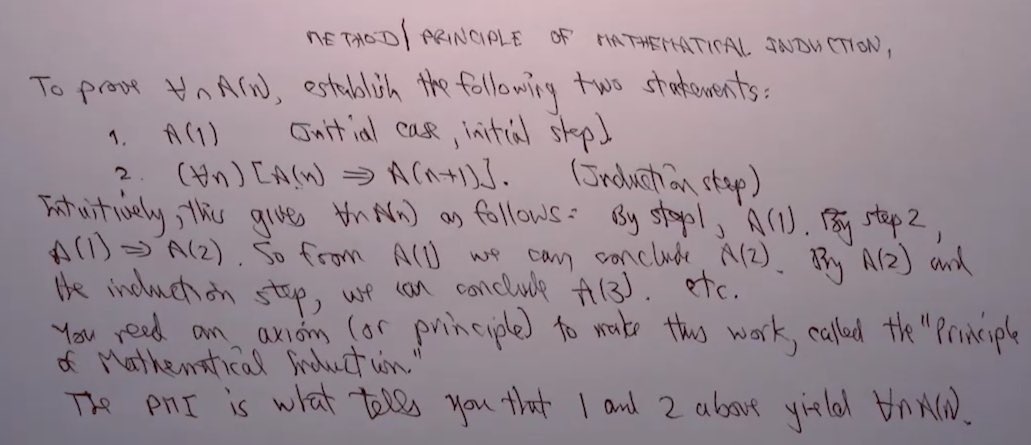 METHOD/PRINCIPLE OF MATHEMATICAL INDUCTION,
To prove ∀n A(n), establish the following two statements:
1. A(1) (Initial case, initial step)
2. (∀n)[A(n) ⇒ A(n+1)]. (Induction step)
Intuitively, this gives ∀n A(n) as follows: By step 1, A(1). By step 2,
A(1) ⇒ A(2). So from A(1) we can conclude A(2). By A(2) and
the induction step, we can conclude A(3). etc.
You need an axiom (or principle) to make this work, called the "Principle
of Mathematical Induction."
The PMI is what tells you that 1 and 2 above yield ∀n A(n).